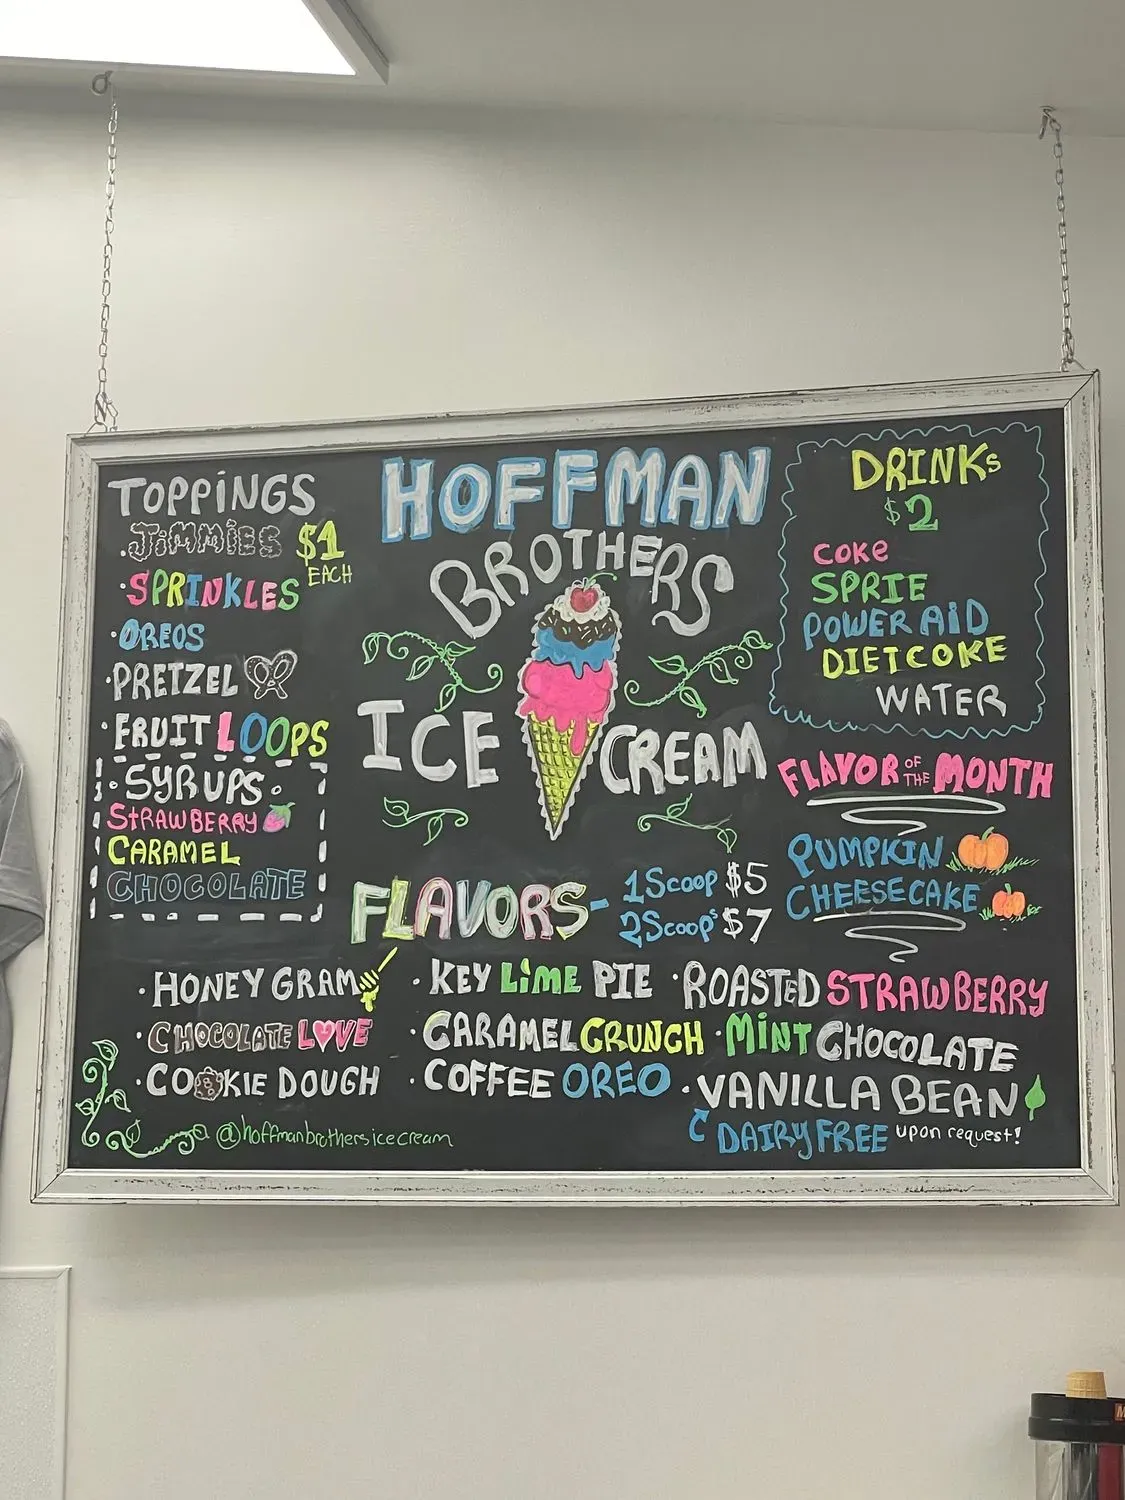 HOFFMAN
BROTHERS
ICE CREAM
TOPPINGS
· JIMMIES $1
EACH
· SPRINKLES
· OREOS
· PRETZEL
· FRUIT LOOPS
· SYRUPS ·
STRAWBERRY
CARAMEL
CHOCOLATE
DRINKS
$2
COKE
SPRIE
POWER AID
DIET COKE
WATER
FLAVOR OF THE MONTH
PUMPKIN
CHEESECAKE
FLAVORS - 1 Scoop $5
2 Scoops $7
· HONEY GRAM
· CHOCOLATE LOVE
· COOKIE DOUGH
· KEY LIME PIE
· CARAMEL CRUNCH
· COFFEE OREO
· ROASTED STRAWBERRY
· MINT CHOCOLATE
· VANILLA BEAN
DAIRY FREE upon request!
@hoffmanbrothersicecream